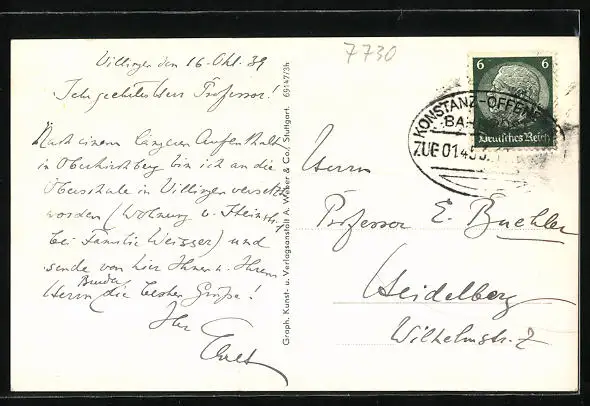 7730
Villingen den 16. Okt. 39
Sehr geehrtester Professor!
Nach einem längeren Aufenthalt
in Oberkirchberg bin ich an die
Oberschule in Villingen versetzt
worden (Wohnung
bei Familie Weisser) und
sende von hier Ihnen u. Ihrem
Herrn Bruder die besten Grüße!
Ihr
Graph. Kunst- u. Verlagsanstalt A. Weber & Co., Stuttgart. 69147/3h
6 6
Deutsches Reich
KONSTANZ-OFFEN
BA
ZUG 0145
Herrn
Professor E. Buchler
Heidelberg
Wilhelmstr. 2